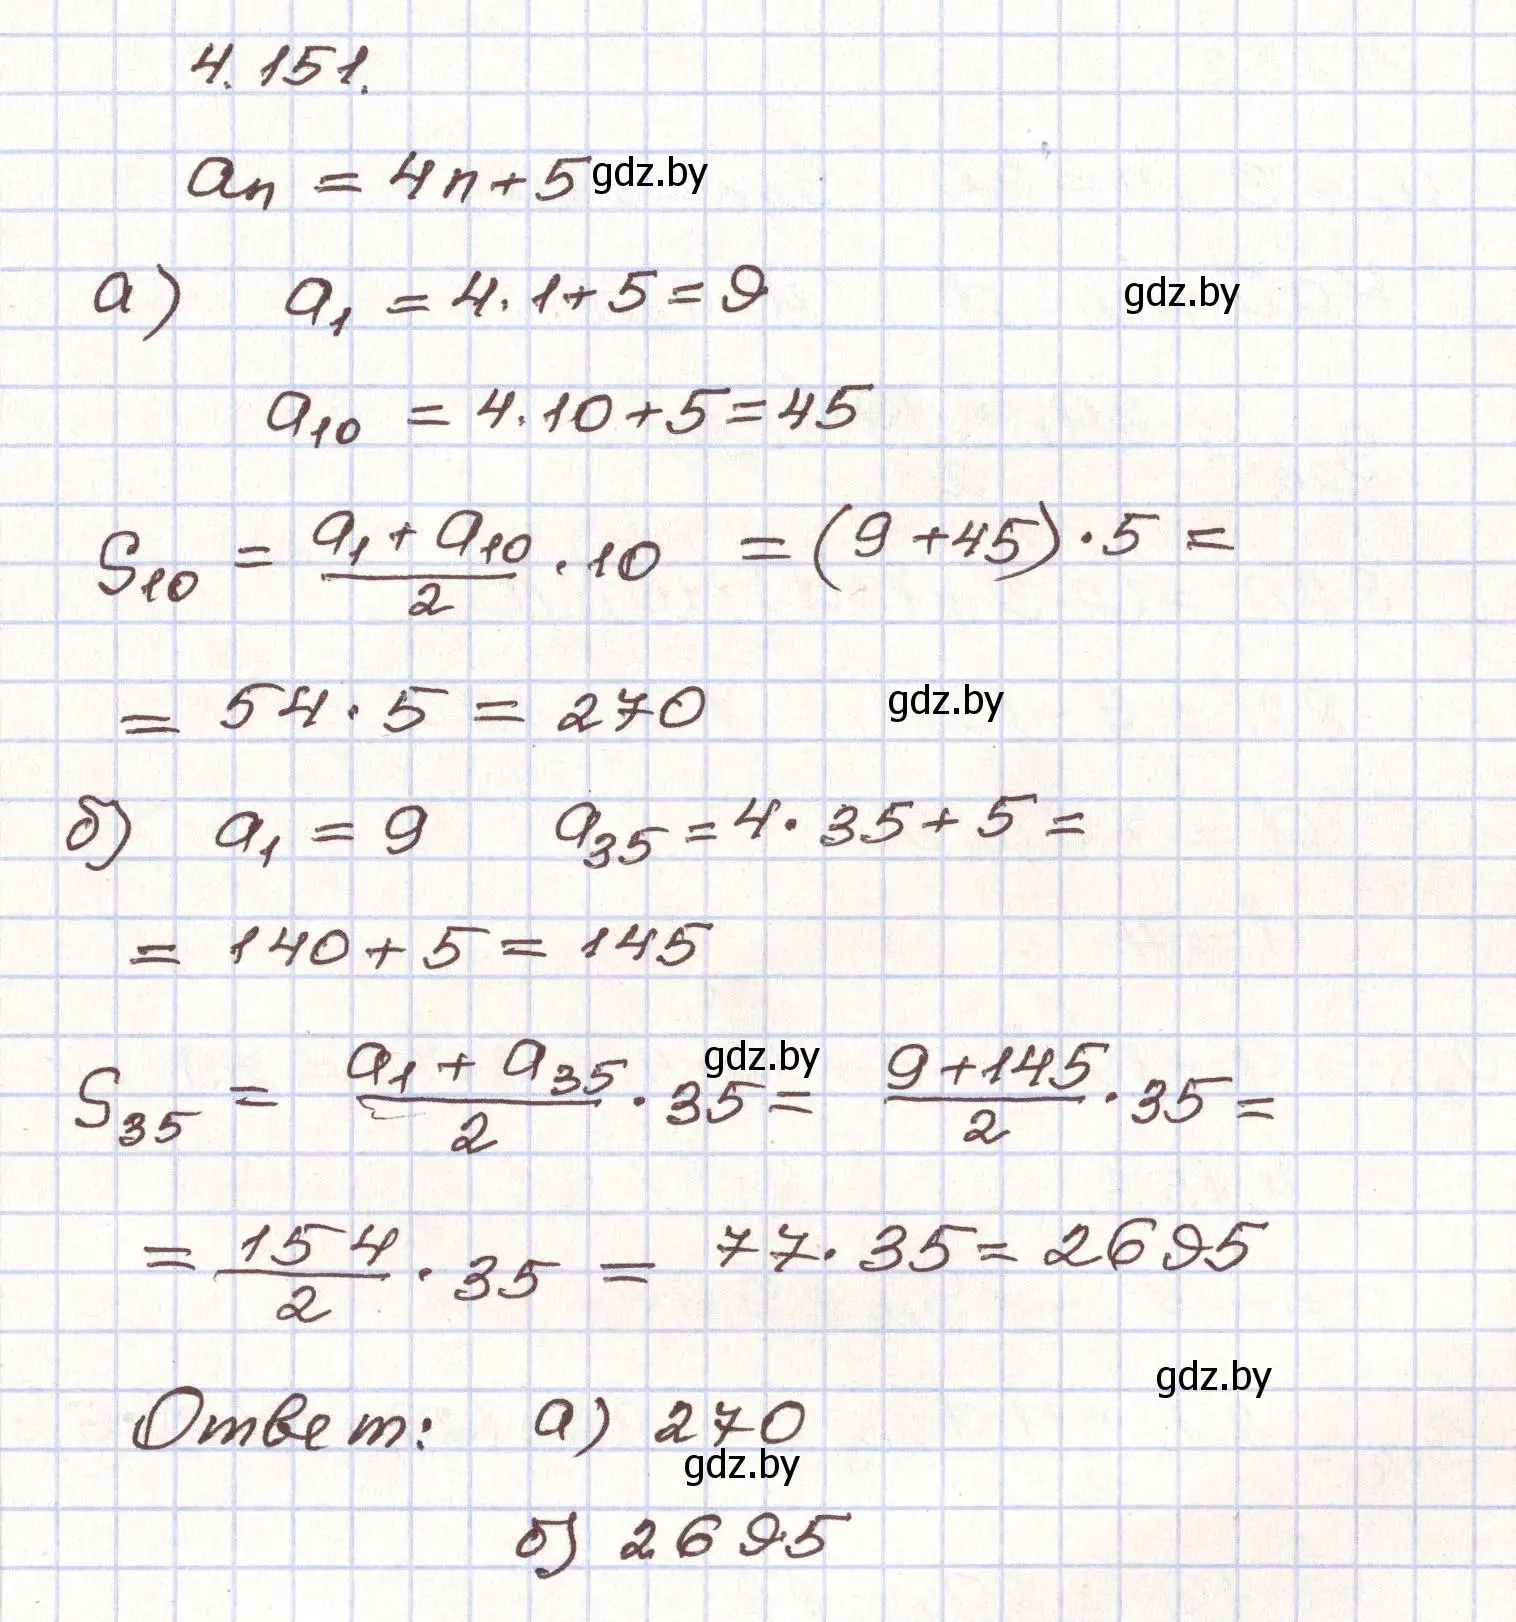 4.151.
aₙ = 4n + 5 gdz.by
а) a₁ = 4·1 + 5 = 9 gdz.by
a₁₀ = 4·10 + 5 = 45
S₁₀ = (a₁ + a₁₀)/2 · 10 = (9 + 45)·5 =
= 54·5 = 270 gdz.by
б) a₁ = 9 a₃₅ = 4·35 + 5 =
= 140 + 5 = 145
S₃₅ = (a₁ + a₃₅)/2 · 35 = (9 + 145)/2 · 35 = gdz.by
= 154/2 · 35 = 77·35 = 2695
gdz.by
Ответ: а) 270
gdz.by
б) 2695